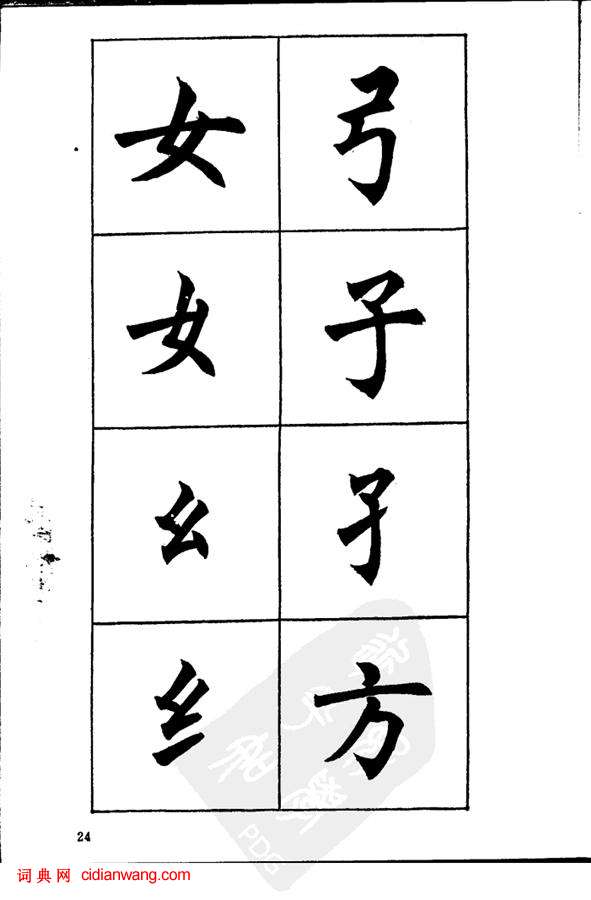 弓
子
孑
方
女
女
幺
纟
24
词典网 cidianwang.com